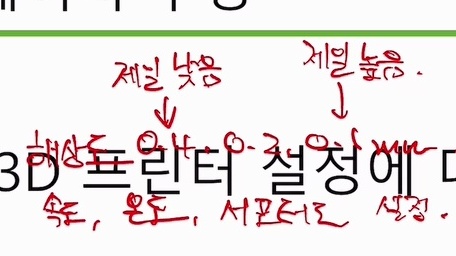 제일 낮음 제일 높음.
해상도 0.4, 0.2, 0.1 mm
3D 프린터 설정에
속도, 온도, 서포터도 설정.